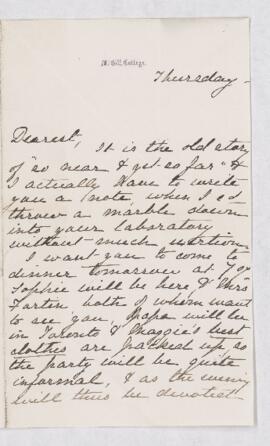 McGill College.
Thursday -
Dearest, It is the old story
of "so near & yet so far" &
I actually have to write
you a note, when I cd
throw a marble down
into your laboratory
without much exertion.
I want you to come to
dinner tomorrow at 7 o'
Sophie will be here & Mrs
both of whom want
to see you, Papa will be
in Toronto & Maggie's best
clothes are packed up so
the party will be quite
informal, & as the evening
will thus be devoted